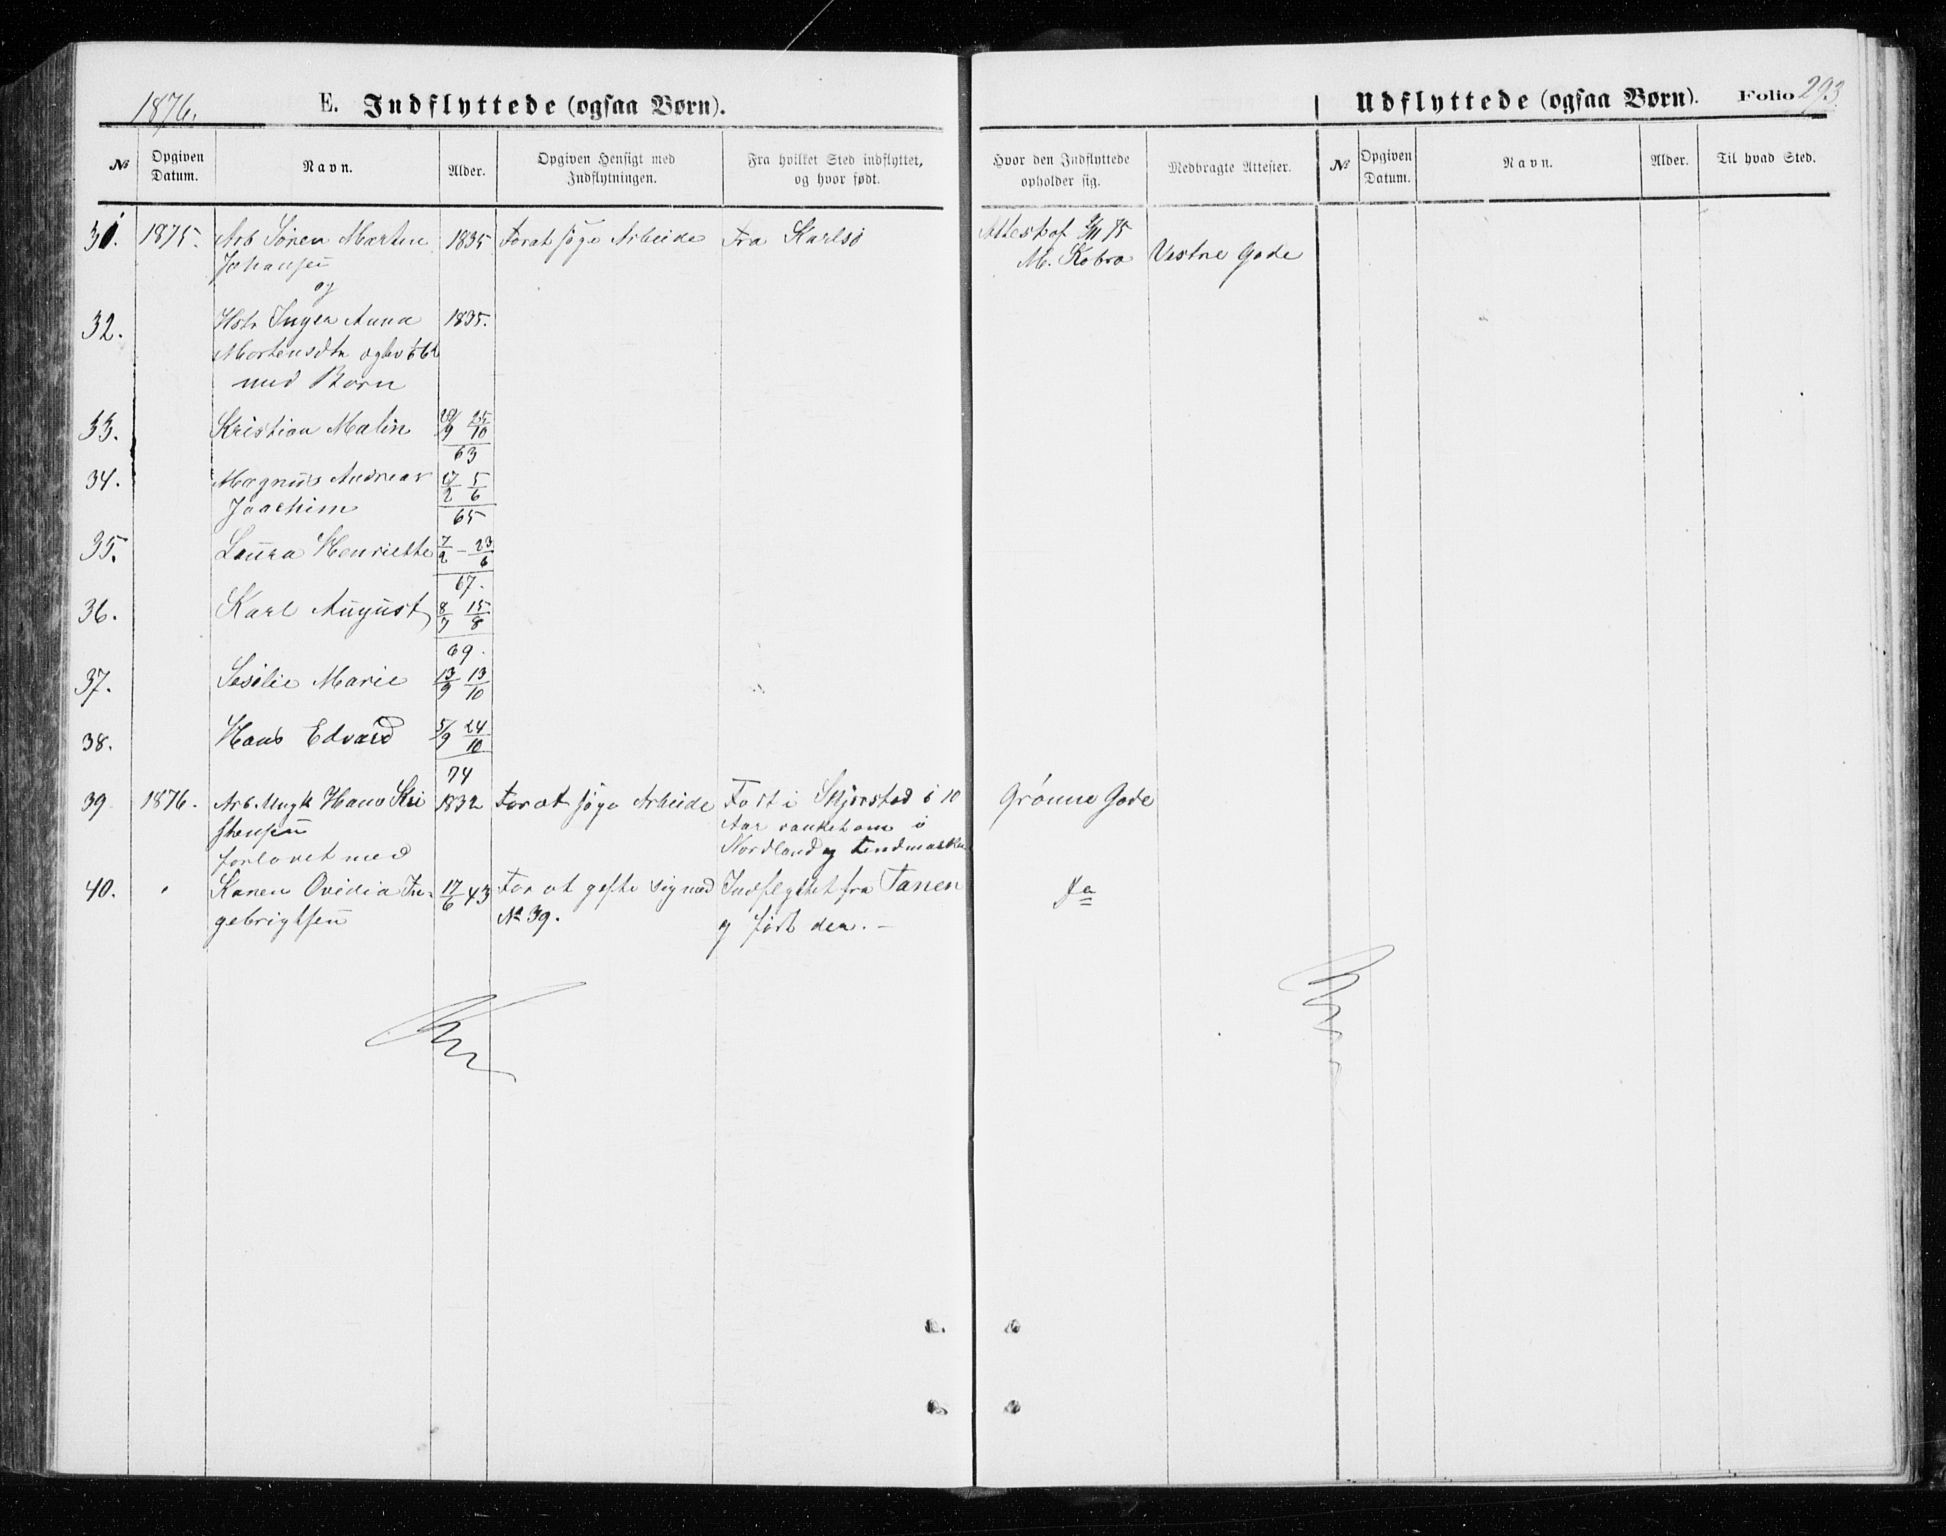 1876.
E. Indflyttede (ogsaa Børn).
№
Opgiven Datum.
Navn.
Alder.
Opgiven Hensigt med Indflytningen.
Fra hvilket Sted indflyttet, og hvor født.
31. 1875. Arb Sören Martin 1835 For at søge Arbeide Fra Karlsö
Johansen
og
32. Hstr Inger Anna 1835.
Mortensdtr
med Börn
33. Kristian Malin 25/10
63
34. Magnus Andreas 5/6
Joachim 65
35. Laura Henriette 7/2 - 23/6
67.
36. Karl August 8/7 15/8
69.
37. Sesilie Marie 13/9 13/10
38. Hans Edvard 5/9 24/10
74
39 1876. Arb. Ungk Hans Kri 1832 For at søge Arbeide Født i Skjerstad i 10
stensen Aar vanket om i
forlovet med Nordland og
40. Karen Ovidia In- 17/6 43 For at gifte sig med Indflyttet fra Tanen
gebrigtsen № 39. og født der. -
Udflyttede (ogsaa Børn). Folio 293.
Hvor den Indflyttede opholder sig.
Medbragte Attester.
№
Opgiven Datum.
Navn.
Alder.
Til hvad Sted.
Attest af 75
M. Kobro Vestre Gade
Grönne Gade
Do